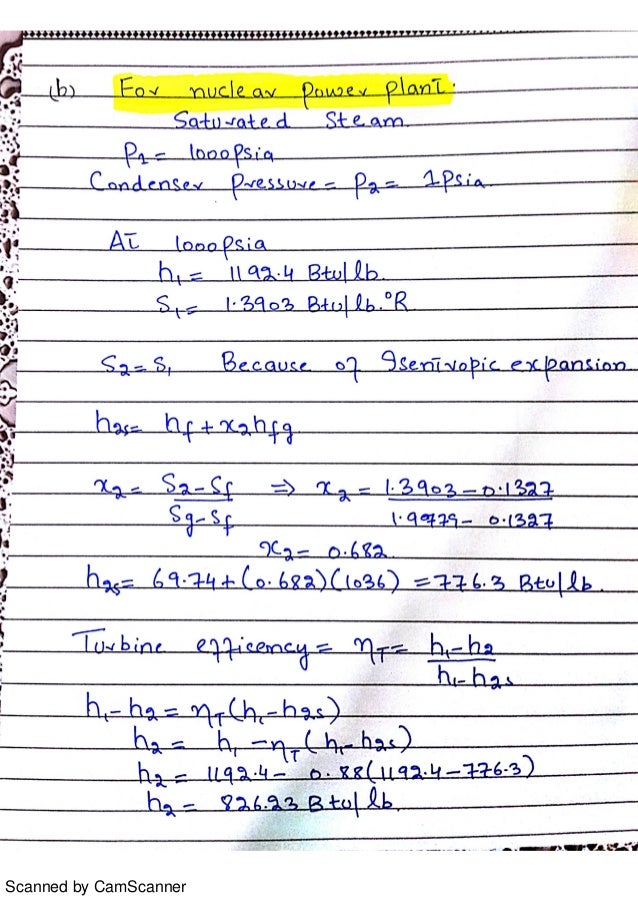 (b) For nuclear power plant.
Saturated Steam
P1 = 1000psia
Condenser Pressure = P2 = 1Psia
At 1000psia
h1 = 1192.4 Btu/lb.
S1 = 1.3903 Btu/lb.°R
S2 = S1 Because of Isentropic expansion
h2s = hf + x2hfg
x2 = S2-Sf / Sg-Sf ⇒ x2 = 1.3903-0.1327 / 1.9779-0.1327
x2 = 0.682
h2s = 69.74+(0.682)(1036) = 776.3 Btu/lb.
Turbine efficency = ηT = h1-h2 / h1-h2s
h1-h2 = ηT(h1-h2s)
h2 = h1-ηT(h1-h2s)
h2 = 1192.4- 0.88(1192.4-776.3)
h2 = 826.23 Btu/lb.
Scanned by CamScanner